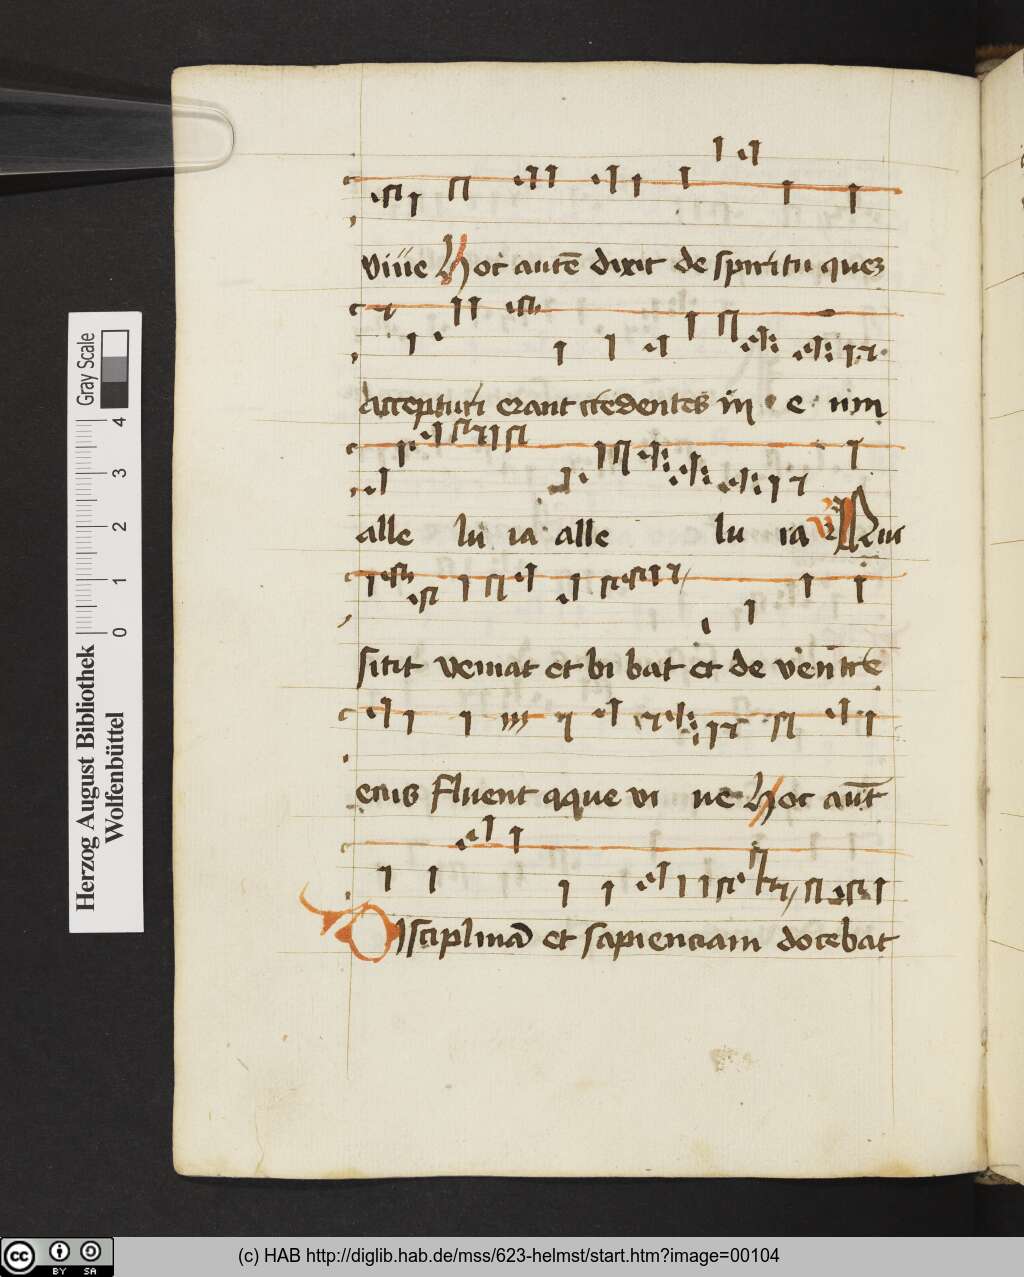 viue Hoc autē dixit de spiritu quez
Accepturi erant credentes in e um
alle lu ia alle lu ia Qui
sitit veniat et bi bat et de ventre
eius fluent aque vi ue Hoc aut̄
Disciplinā et sapienciam docebat
Gray Scale
0 1 2 3 4
Herzog August Bibliothek
Wolfenbüttel
cc BY SA
(c) HAB http://diglib.hab.de/mss/623-helmst/start.htm?image=00104